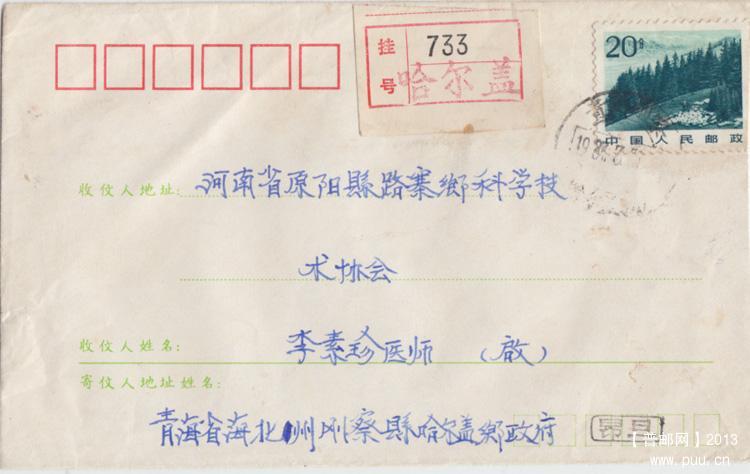 挂号 733
哈尔盖
20分
中国人民邮政
收伩人地址:河南省原阳縣路寨鄉科学技
术协会
收伩人姓名:李素珍医师(啟)
寄伩人地址姓名:
青海省海北州刚察縣哈尔盖鄉政府
【普邮网】2013
www.puu.cn